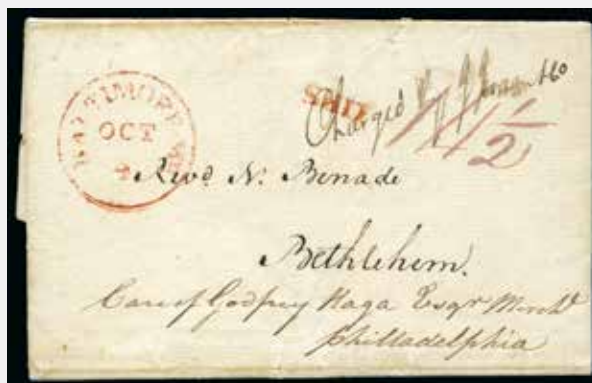 BALTIMORE Md
OCT
SHIP
Charged
Revd N. Benade
Bethlehem.
Care of Godfrey Haga Esqr Mercht
philladelphia